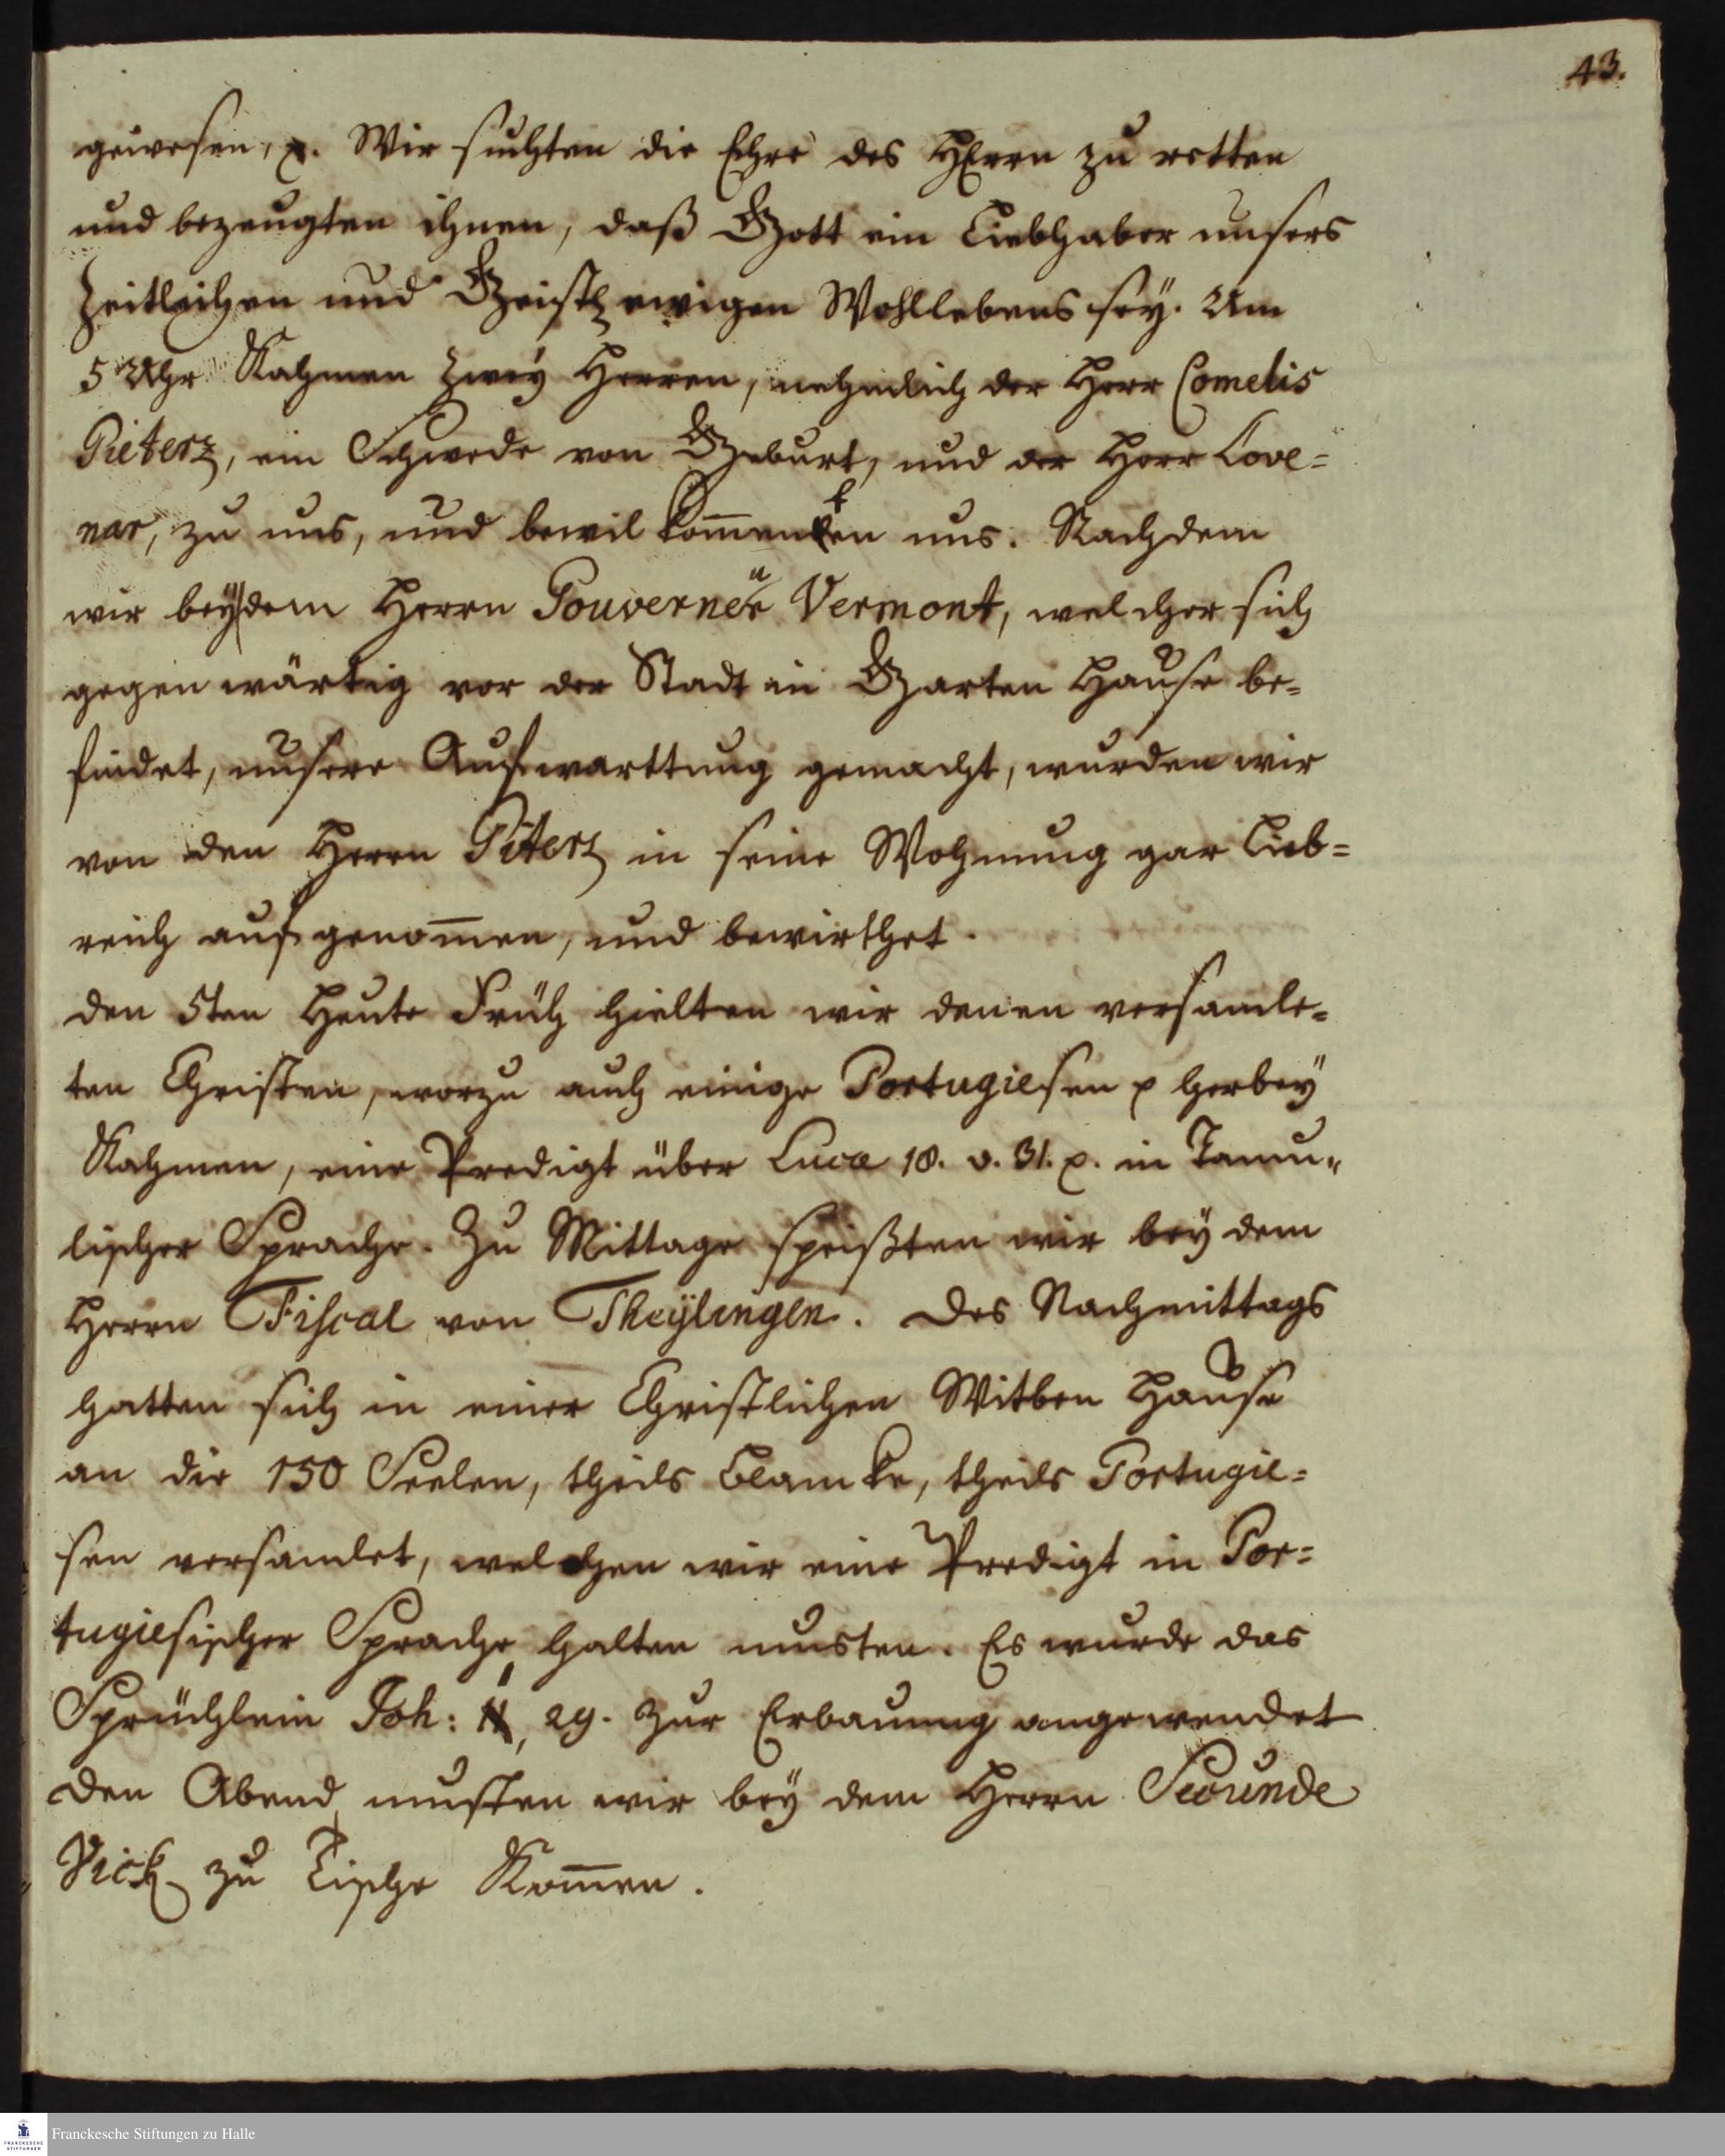 43.
gewesen, p. Wir suchten die Ehre des HErrn zu retten
und bezeugten ihnen, daß Gott ein Liebhaber unsers
Zeitleichen und Geistl ewigen Wohllebens sey. Um
5 Uhr Kahmen Zwey Herren, nehmlich der Herr Cornelis
Pieterz, ein Schwede von Geburt, und der Herr Love=
nar, zu uns, und bewil kom̄enten uns. Nachdem
wir bey dem Herrn Gouverneur Vermont, welcher sich
gegen wärtig vor der Stadt in Garten Hause be=
findet, unsere Aufwarttung gemacht, wurden wir
von den Herrn Piterz in seine Wohnung gar Lieb=
reich auf genom̄en, und bewirthet.
den 5ten Heute Früh hielten wir denen versamle=
ten Christen, worzu auch einige Portugiesen p herbey
Kahmen, eine Predigt über Luca 18. v. 31. p. in Tamu=
lischer Sprache. Zu Mittage speißten wir bey dem
Herrn Fiscal von Theÿlingen. Des Nachmittags
hatten sich in einer Christlichen Witben Hause
an die 150 Seelen, theils Blancke, theils Portugie=
sen versamlet, welchen wir eine Predigt in Por=
tugiesischer Sprache halten musten. Es wurde das
Sprüchlein Joh: 1, 29. zur Erbauung angewendet
Den Abend musten wir bey dem Herrn Secunde
Vick zu Tische Kom̄en.
Franckesche Stiftungen zu Halle
FRANCKESCHE
STIFTUNGEN